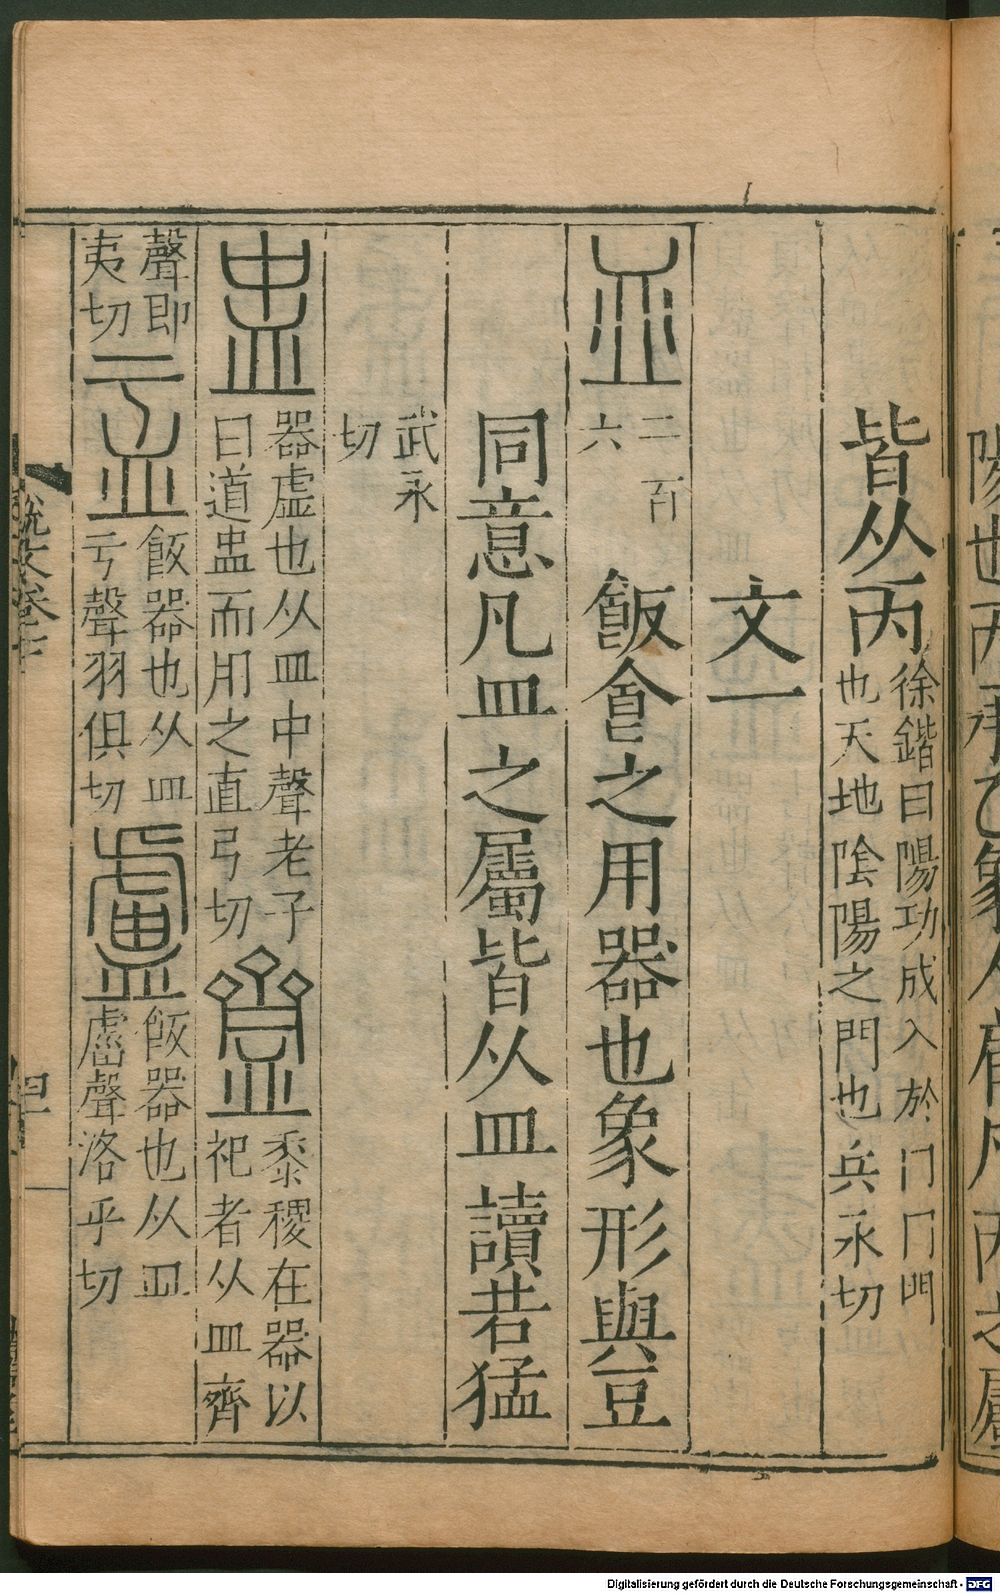 皆从丙徐鍇曰陽功成入於冂冂門
也天地陰陽之門也兵永切
文一
皿二百
六
飯食之用器也象形與豆
同意凡皿之屬皆从皿讀若猛
武永
切
盅器虛也从皿中聲老子
曰道盅而用之直弓切
齍黍稷在器以
祀者从皿齊
聲卽
夷切
盂飯器也从皿
亏聲羽俱切
盧飯器也从皿
䖒聲洛乎切
說文卷
四一
Digitalisierung gefördert durch die Deutsche Forschungsgemeinschaft - DFG